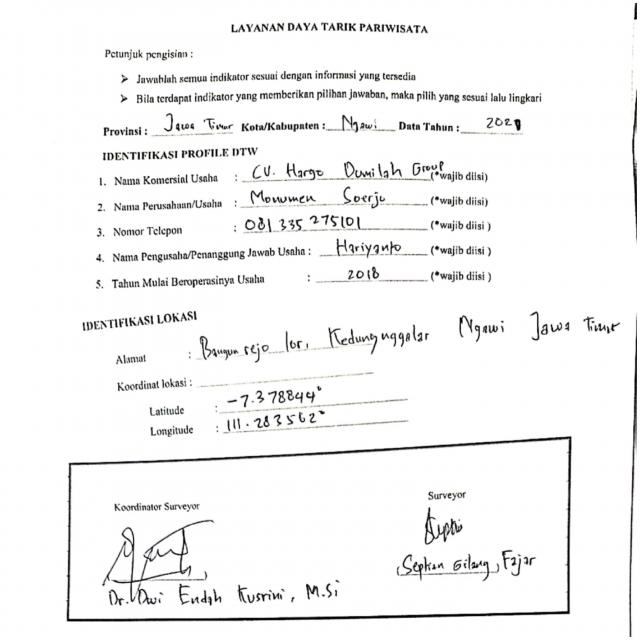 LAYANAN DAYA TARIK PARIWISATA
Petunjuk pengisian :
➢ Jawablah semua indikator sesuai dengan informasi yang tersedia
➢ Bila terdapat indikator yang memberikan pilihan jawaban, maka pilih yang sesuai lalu lingkari
Provinsi : Jawa Timur Kota/Kabupaten : Ngawi Data Tahun : 2021
IDENTIFIKASI PROFILE DTW
1. Nama Komersial Usaha : CV. Hargo Dumilah Group (*wajib diisi)
2. Nama Perusahaan/Usaha : Monumen Soerjo (*wajib diisi)
3. Nomor Telepon : 081 335 275101 (*wajib diisi )
4. Nama Pengusaha/Penanggung Jawab Usaha : Hariyanto (*wajib diisi )
5. Tahun Mulai Beroperasinya Usaha : 2018 (*wajib diisi )
IDENTIFIKASI LOKASI
Alamat : Bangun rejo lor, Kedungnggalar Ngawi Jawa Timur
Koordinat lokasi :
Latitude : -7.378844°
Longitude : 111.283562°
Koordinator Surveyor
Surveyor
Septian Gilang, Fajar
Dr. Dwi Endah Kusrini, M.Si